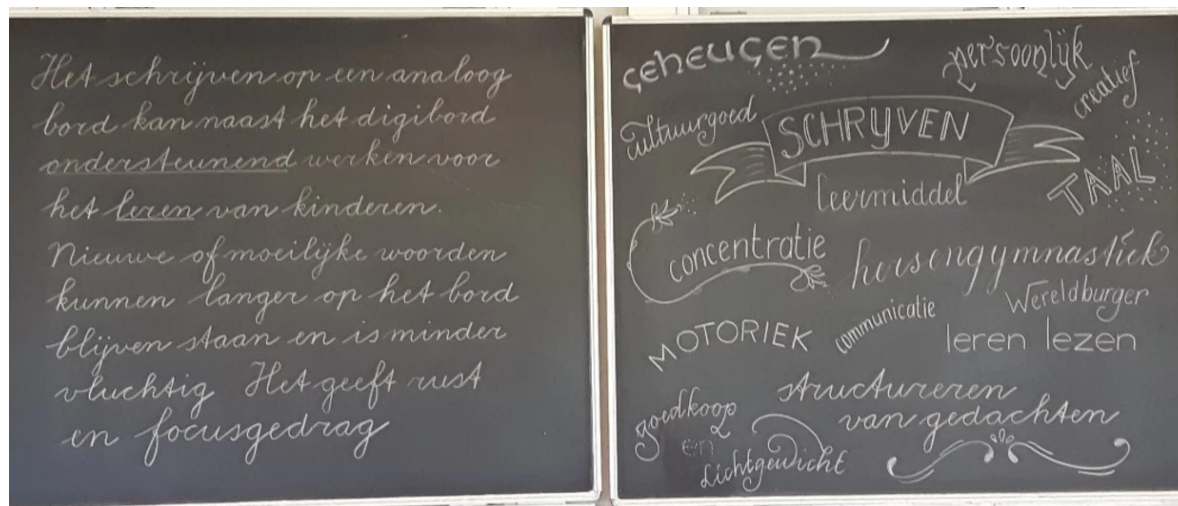 Het schrijven op een analoog
bord kan naast het digibord
ondersteunend werken voor
het leren van kinderen.
Nieuwe of moeilijke woorden
kunnen langer op het bord
blijven staan en is minder
vluchtig Het geeft rust
en focusgedrag
geheugen
persoonlijk
creatief
cultuurgoed
SCHRIJVEN
TAAL
leermiddel
concentratie
hersengymnastiek
Wereldburger
communicatie
MOTORIEK
leren lezen
structureren
van gedachten
goedkoop
en
Lichtgewicht